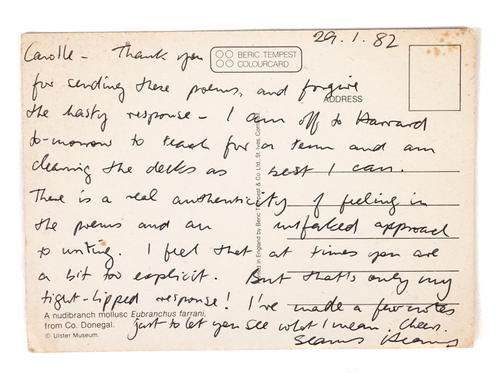 29.1.82
Carolle - Thank you
BERIC TEMPEST
COLOURCARD
for sending these poems, and forgive
ADDRESS
the hasty response - I am off to Harvard
to-morrow to teach for a term and am
clearing the decks as best I can.
There is a real authenticity of feeling in
the poems and an unfaked approach
to writing. I feel that at times you are
a bit too explicit. But that's only my
tight-lipped response! I've made a few notes
just to let you see what I mean. Cheers.
Seamus Heaney
A nudibranch mollusc Eubranchus farrani,
from Co. Donegal.
© Ulster Museum.
in England by Beric Tempest & Co. Ltd., St. Ives,